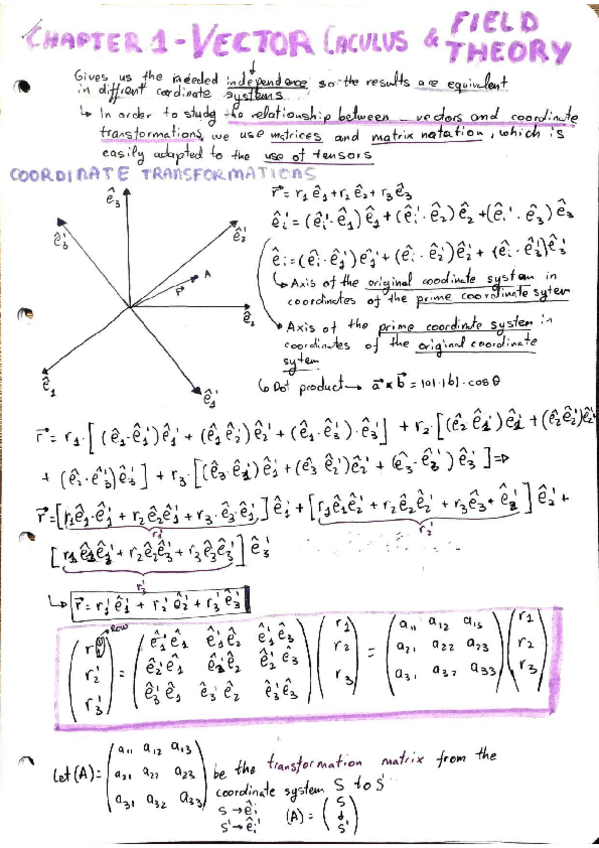 CHAPTER 1 - VECTOR CACULUS & FIELD THEORY
Gives us the ineeded independence so the results are equivalent
in diffirent cordinate systems
↳ In order to study the relationship between _ vectors and coordinate
transformations, we use matrices and matrix notation, which is
easily adapted to the use of tensors
COORDINATE TRANSFORMATIONS
ê₃
ê₃'
ê₂'
A
r⃗
ê₂
ê₁
ê₁'
r⃗ = r₁ê₁ + r₂ê₂ + r₃ê₃
êᵢ' = (êᵢ'·ê₁)ê₁ + (êᵢ'·ê₂)ê₂ + (êᵢ'·ê₃)ê₃
êᵢ = (êᵢ·ê₁')ê₁' + (êᵢ·ê₂')ê₂' + (êᵢ·ê₃')ê₃'
↳ Axis of the original coodinate system in
coordinates of the prime coordinate sytem
Axis of the prime coordinate system in
coordinates of the original coordinate
sytem
↳ Dot product → a⃗ × b⃗ = |a|·|b|·cos θ
r⃗ = r₁·[(ê₁·ê₁')ê₁' + (ê₁ê₂')ê₂' + (ê₁·ê₃')·ê₃'] + r₂·[(ê₂ê₁')ê₁' + (ê₂ê₂')ê₂'
+ (ê₂·ê₃')ê₃'] + r₃·[(ê₃·ê₁')ê₁' + (ê₃ê₂')ê₂' + (ê₃·ê₃')ê₃'] =>
r⃗ = [r₁ê₁·ê₁' + r₂ê₂ê₁' + r₃·ê₃·ê₁']ê₁' + [r₁ê₁ê₂' + r₂ê₂ê₂' + r₃ê₃·ê₂']ê₂' +
r₁'
r₂'
[r₁ê₁ê₃' + r₂ê₂ê₃' + r₃ê₃ê₃']ê₃'
r₃'
↳ r⃗ = r₁'ê₁' + r₂'ê₂' + r₃'ê₃'
row
(r₁') = (ê₁'ê₁ ê₁'ê₂ ê₁'ê₃) (r₁) = (a₁₁ a₁₂ a₁₃) (r₁)
(r₂') (ê₂'ê₁ ê₂'ê₂ ê₂'ê₃) (r₂) (a₂₁ a₂₂ a₂₃) (r₂)
(r₃') (ê₃'ê₁ ê₃'ê₂ ê₃'ê₃) (r₃) (a₃₁ a₃₂ a₃₃) (r₃)
Let (A) = (a₁₁ a₁₂ a₁₃
a₂₁ a₂₂ a₂₃
a₃₁ a₃₂ a₃₃) be the transformation matrix from the
coordinate system S to S'
S → êᵢ
S' → êᵢ'
(A) = (S ↓ S')